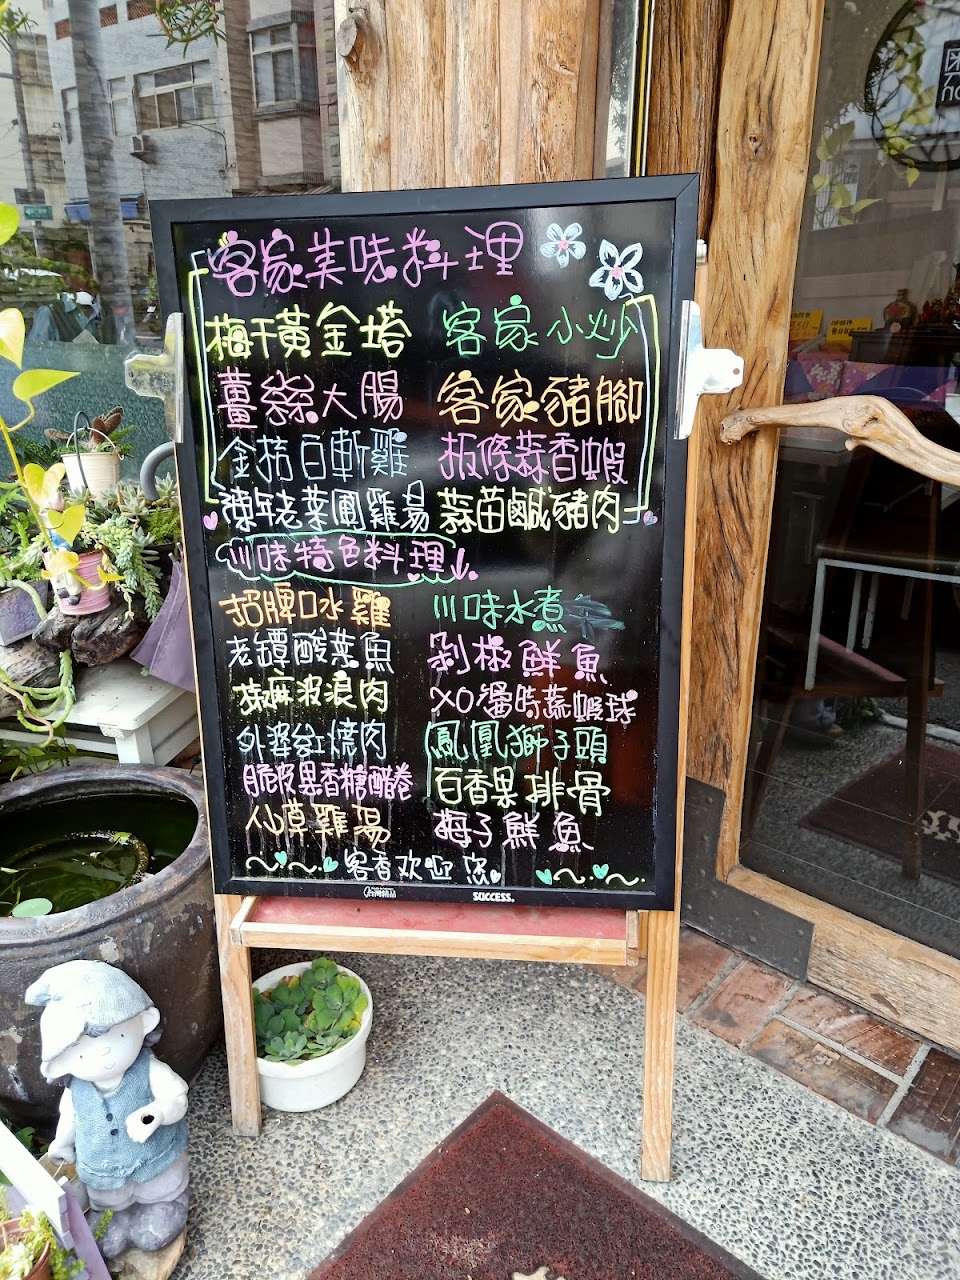 客家美味料理
梅干黃金塔 客家小炒
薑絲大腸 客家豬腳
金桔白斬雞 板條蒜香蝦
陳年老菜圃雞湯 蒜苗鹹豬肉
川味特色料理
招牌口水雞 川味水煮
老罈酸菜魚 剁椒鮮魚
椒麻波浪肉 XO醬時蔬蝦球
外婆紅燒肉 鳳凰獅子頭
脆皮果香糖醋卷 百香果排骨
仙草雞湯 梅子鮮魚
客香欢迎您
台灣精品 SUCCESS.